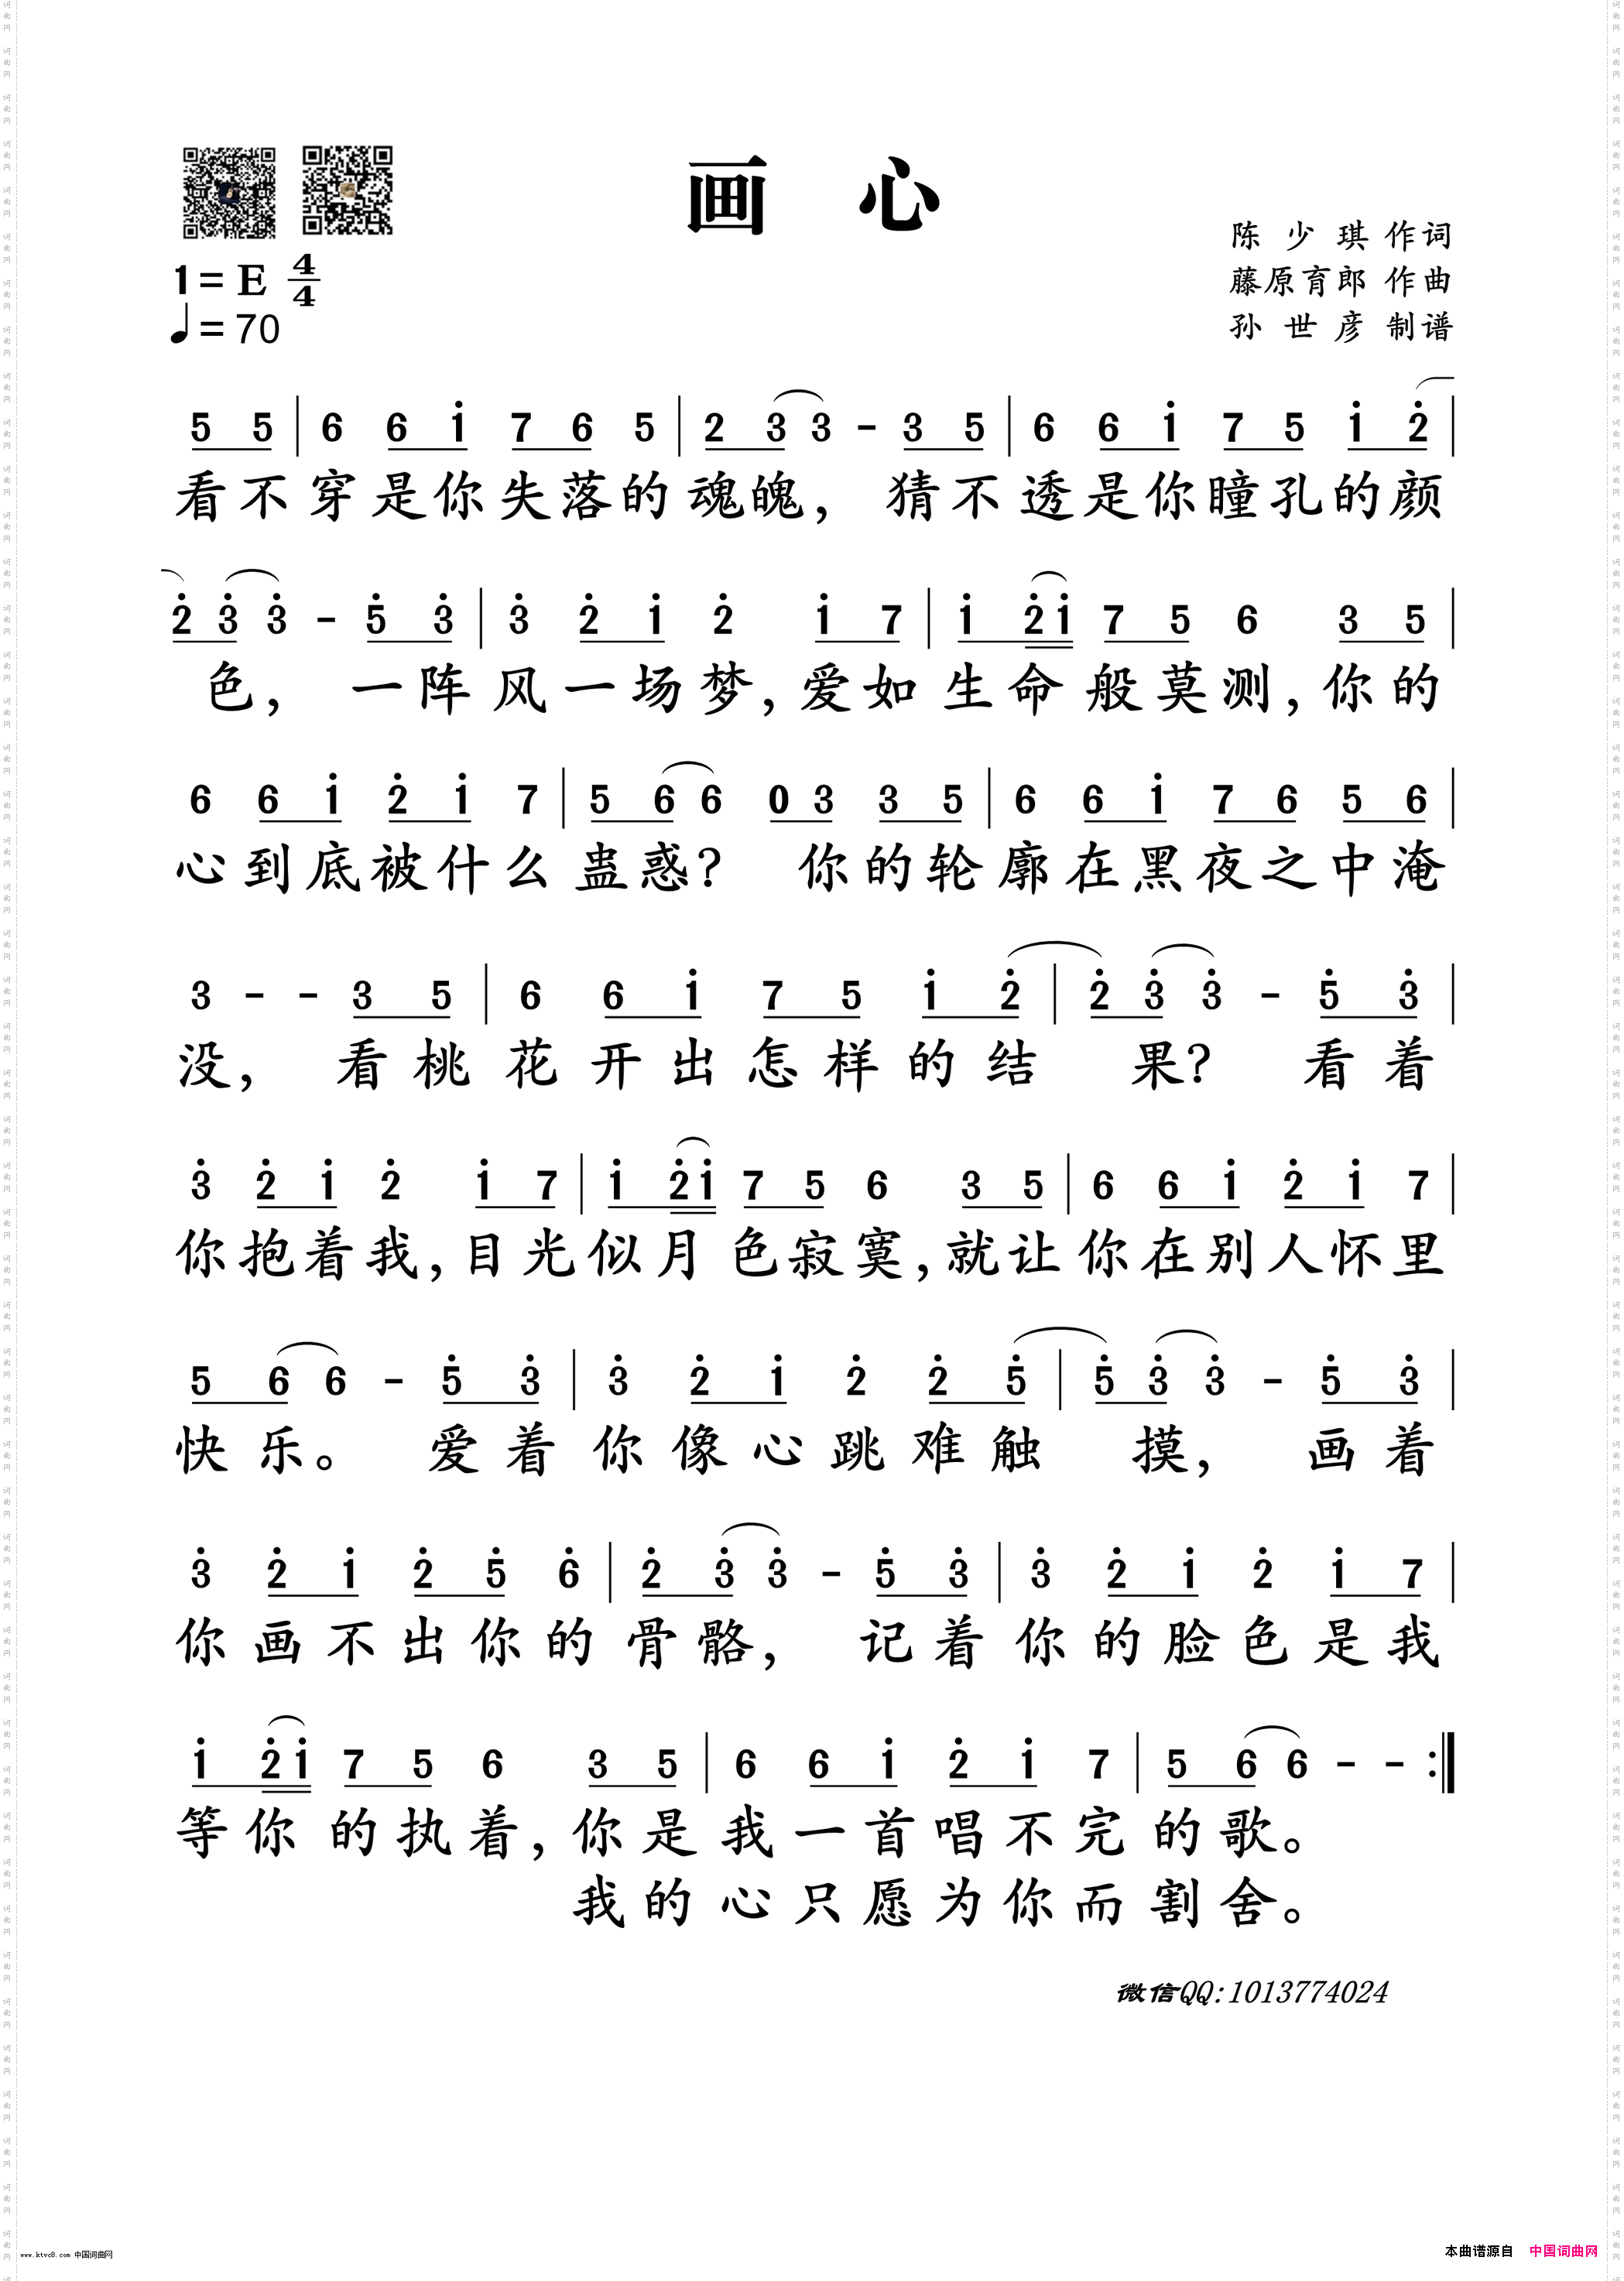 画 心
陈 少 琪 作词
藤原育郎 作曲
孙 世 彦 制谱
1=E 4/4
♩=70
5 5 | 6 6 1̇ 7 6 5 | 2 3 3 - 3 5 | 6 6 1̇ 7 5 1̇ 2̇ |
看不穿是你失落的魂魄，猜不透是你瞳孔的颜
2̇ 3̇ 3̇ - 5̇ 3̇ | 3̇ 2̇ 1̇ 2̇ 1̇ 7 | 1̇ 2̇ 1̇ 7 5 6 3 5 |
色，一阵风一场梦，爱如生命般莫测，你的
6 6 1̇ 2̇ 1̇ 7 | 5 6 6 0 3 3 5 | 6 6 1̇ 7 6 5 6 |
心到底被什么蛊惑？你的轮廓在黑夜之中淹
3 - - 3 5 | 6 6 1̇ 7 5 1̇ 2̇ | 2̇ 3̇ 3̇ - 5̇ 3̇ |
没，看桃花开出怎样的结果？看着
3̇ 2̇ 1̇ 2̇ 1̇ 7 | 1̇ 2̇ 1̇ 7 5 6 3 5 | 6 6 1̇ 2̇ 1̇ 7 |
你抱着我，目光似月色寂寞，就让你在别人怀里
5 6 6 - 5̇ 3̇ | 3̇ 2̇ 1̇ 2̇ 2̇ 5̇ | 5̇ 3̇ 3̇ - 5̇ 3̇ |
快乐。爱着你像心跳难触摸，画着
3̇ 2̇ 1̇ 2̇ 5̇ 6̇ | 2̇ 3̇ 3̇ - 5̇ 3̇ | 3̇ 2̇ 1̇ 2̇ 1̇ 7 |
你画不出你的骨骼，记着你的脸色是我
1̇ 2̇ 1̇ 7 5 6 3 5 | 6 6 1̇ 2̇ 1̇ 7 | 5 6 6 - - :‖
等你的执着，你是我一首唱不完的歌。
我的心只愿为你而割舍。
微信QQ:1013774024
www.ktvc8.com 中国词曲网
本曲谱源自 中国词曲网